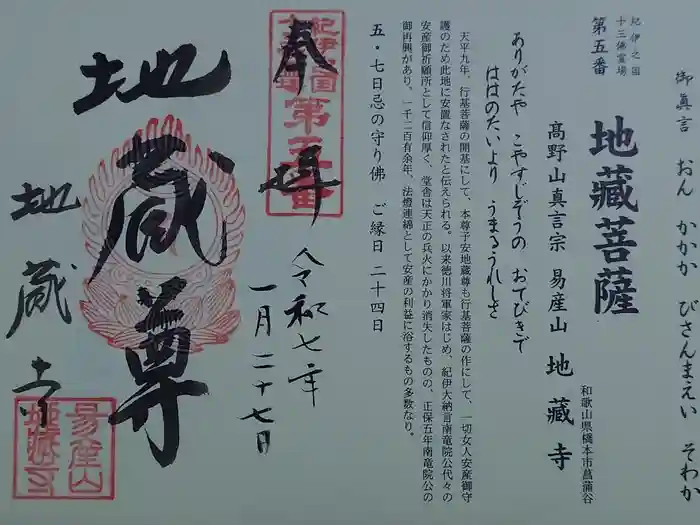 御真言 おん かかか びさんまえい そわか
紀伊之国
十三佛霊場
第五番
地藏菩薩
和歌山県橋本市菖蒲谷
髙野山真言宗 易産山 地藏寺
ありがたや こやすじぞうの おてびきで
ははのたいより うまるうれしさ
天平九年、行基菩薩の開基にして、本尊子安地蔵尊も行基菩薩の作にして、一切女人安産御守
護のため此地に安置なされたと伝えられる。以来徳川将軍家はじめ、紀伊大納言南竜院公代々の
安産御祈願所として信仰厚く、堂舎は天正の兵火にかかり消失したものの、正保五年南竜院公の
御再興があり、一千二百有余年、法燈連綿として安産の利益に浴するもの多数なり。
五・七日忌の守り佛 ご縁日 二十四日
紀伊之国
十三佛霊場
第五番
奉拝
令和七年
一月二十七日
地蔵尊
地蔵寺
易産山
地蔵寺